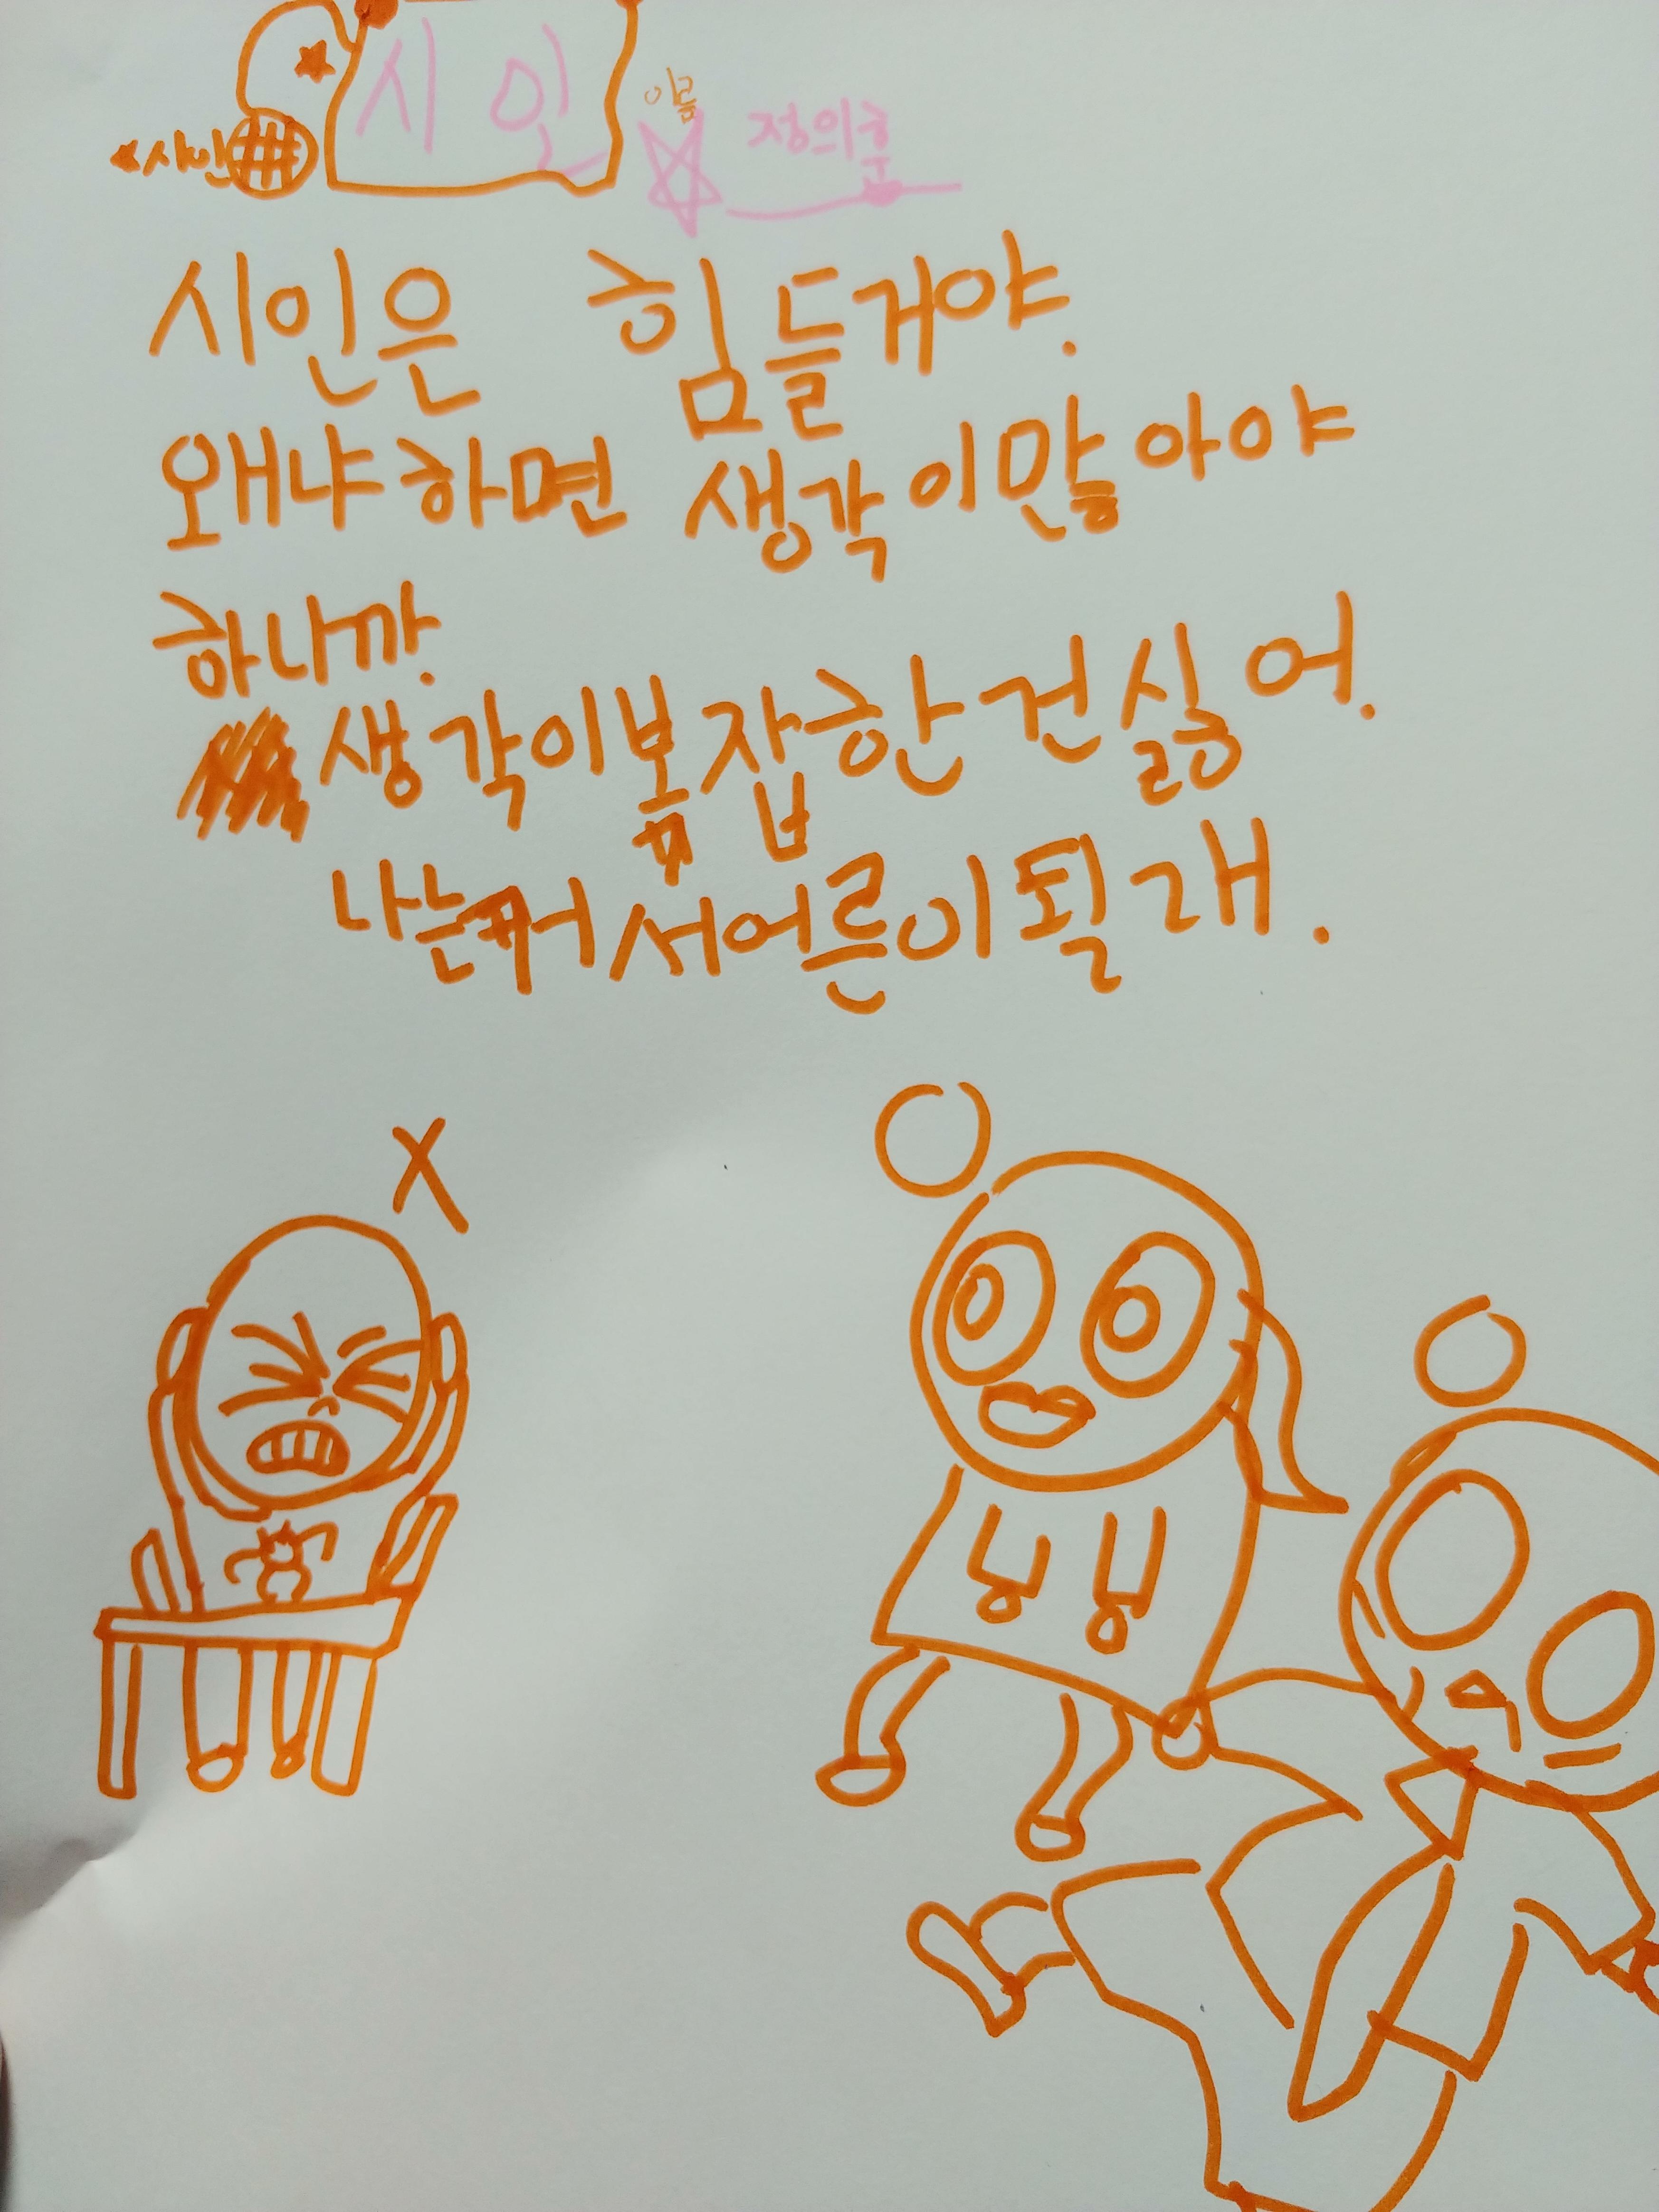 시인
이름
정의훈
시인
시인은 힘들거야.
왜냐하면 생각이많아야
하니까.
생각이복잡한건싫어.
나는커서어른이될래.
X